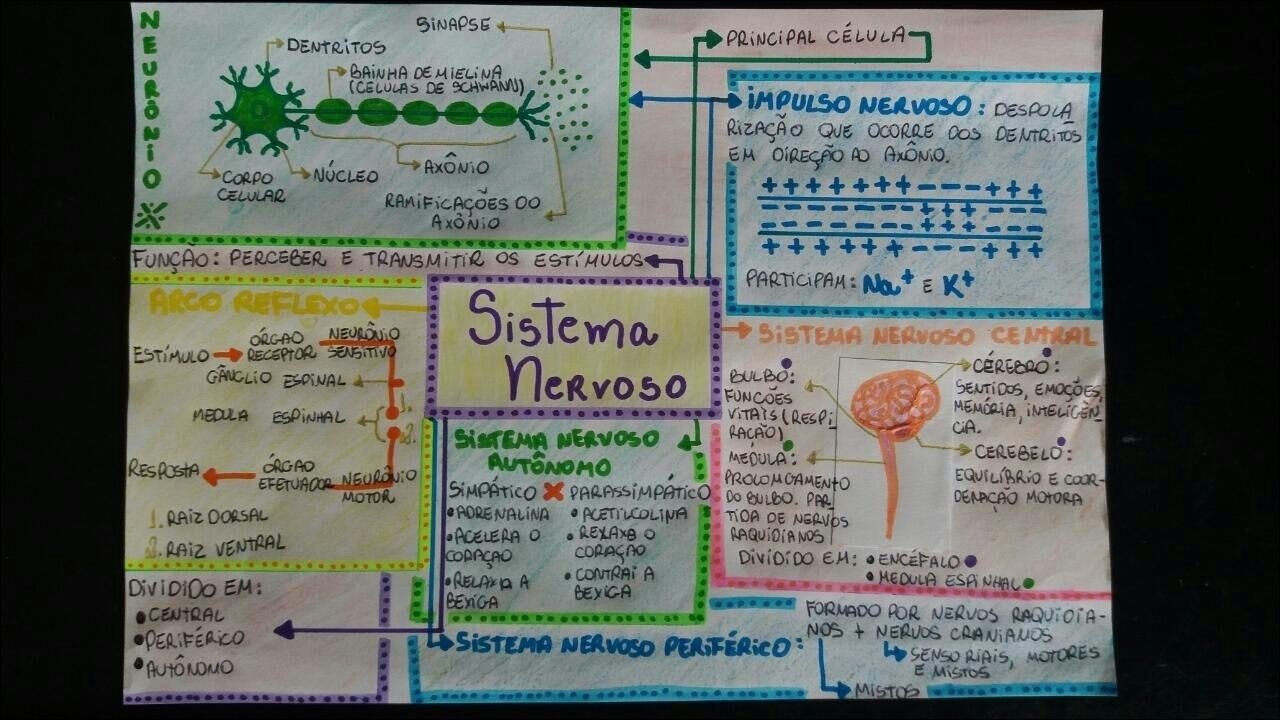 NEURÔNIO
SINAPSE
DENTRITOS
BAINHA DE MIELINA
(CÉLULAS DE SCHWANN)
CORPO
CELULAR
NÚCLEO
AXÔNIO
RAMIFICAÇÕES DO
AXÔNIO
PRINCIPAL CÉLULA
IMPULSO NERVOSO: DESPOLA
RIZAÇÃO QUE OCORRE DOS DENTRITOS
EM DIREÇÃO AO AXÔNIO.
+ + + + + + + - - - + + +
- - - - - - - + + + - - -
- - - - - - - + + + - - -
+ + + + + + + - - - + + +
PARTICIPAM: Na+ E K+
FUNÇÃO: PERCEBER E TRANSMITIR OS ESTÍMULOS
Sistema
Nervoso
ARCO REFLEXO
ESTÍMULO
ÓRGAO
RECEPTOR
NEURÔNIO
SENSITIVO
GÂNGLIO ESPINAL
MEDULA ESPINHAL
1.
2.
RESPOSTA
ÓRGAO
EFETUADOR
NEURÔNIO
MOTOR
1. RAIZ DORSAL
2. RAIZ VENTRAL
SISTEMA NERVOSO CENTRAL
BULBO:
FUNÇÕES
VITAIS (RESPI
RAÇÃO)
MÉDULA:
PROLONGAMENTO
DO BULBO. PAR
TIDA DE NERVOS
RAQUIDIANOS
CÉREBRO:
SENTIDOS, EMOÇÕES,
MEMÓRIA, INTELIGÊN
CIA.
CEREBELO:
EQUILÍBRIO E COOR-
DENAÇÃO MOTORA
DIVIDIDO EM: • ENCÉFALO
• MEDULA ESPINHAL
SISTEMA NERVOSO
AUTÔNOMO
SIMPÁTICO X PARASSIMPÁTICO
• ADRENALINA
• ACELERA O
CORAÇÃO
• RELAXA A
BEXIGA
• ACETILCOLINA
• RELAXA O
CORAÇAO
• CONTRAI A
BEXIGA
DIVIDIDO EM:
• CENTRAL
• PERIFÉRICO
• AUTÔNOMO
SISTEMA NERVOSO PERIFÉRICO:
FORMADO POR NERVOS RAQUIDIA-
NOS + NERVOS CRANIANOS
SENSORIAIS, MOTORES
E MISTOS
MISTOS